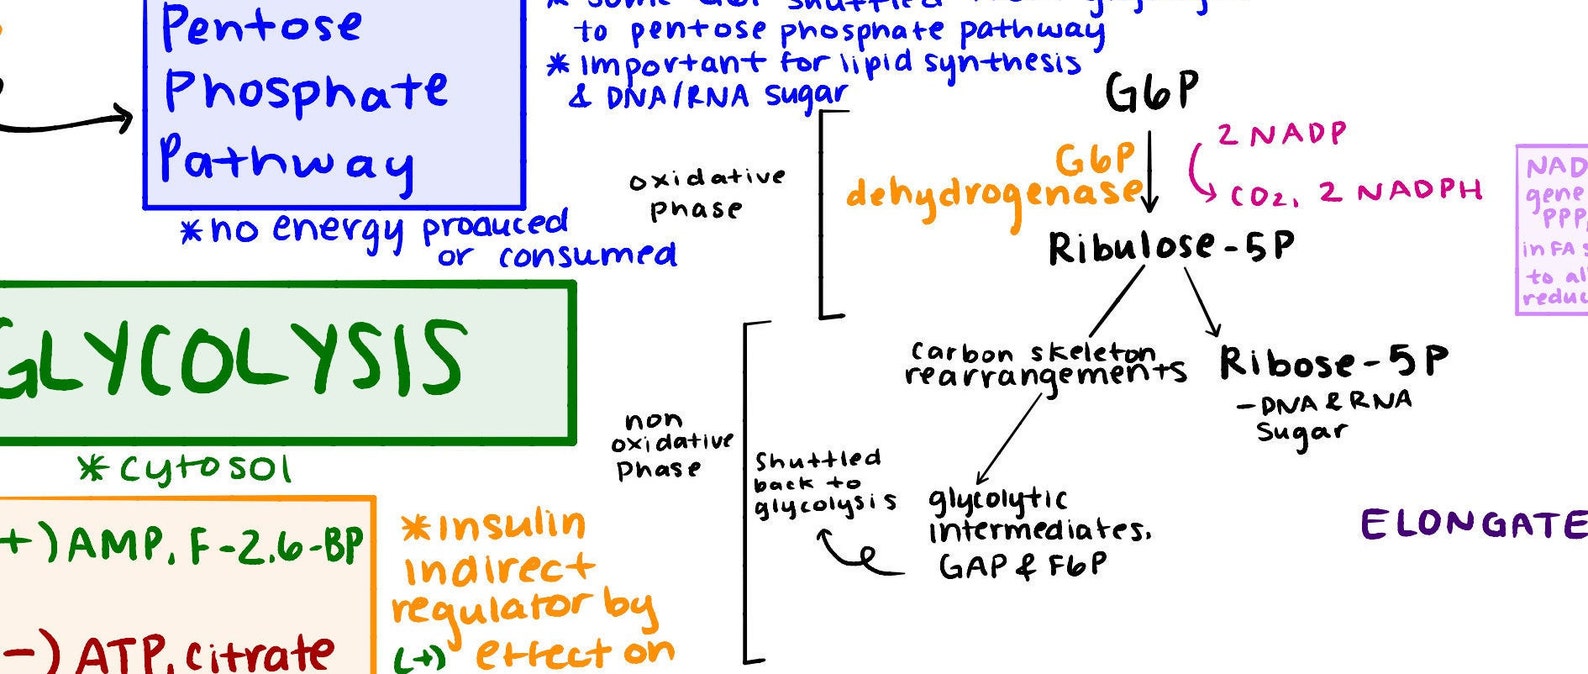 Pentose
Phosphate
Pathway
*no energy produced
or consumed
to pentose phosphate pathway
* Important for lipid synthesis
& DNA/RNA sugar
oxidative
phase
G6P
G6P
dehydrogenase
2 NADP
CO2, 2 NADPH
Ribulose-5P
NAD
gene
PPP,
in FA s
to al
reduc
GLYCOLYSIS
*cytosol
non
oxidative
Phase
carbon skeleton
rearrangements
Ribose-5P
-DNA & RNA
Sugar
Shuttled
back to
glycolysis
glycolytic
intermediates,
GAP & F6P
ELONGATE
+) AMP, F-2,6-BP
-) ATP, citrate
*Insulin
indirect
regulator by
(+) effect on